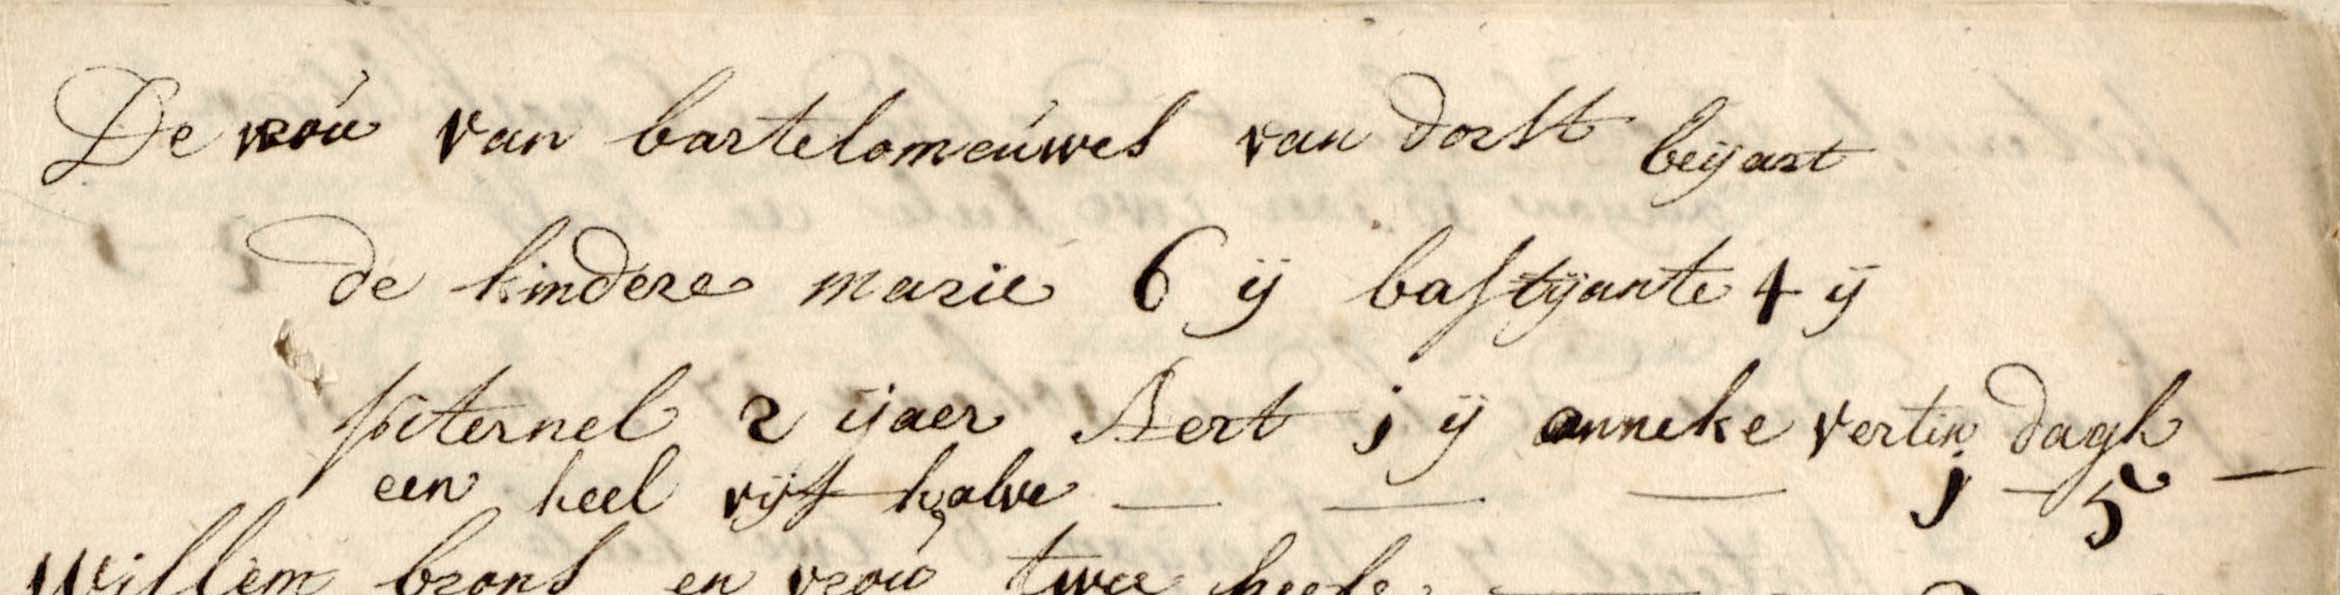 De vrou van bartelomeuwes van dorst beijart
de kindere marie 6 ij bastijante 4 ij
piternel 2 ijaer Aert j ij anneke vertin dagh
een heel vijf halve — — — j — 5 —
Willem brons en vrou twee heele